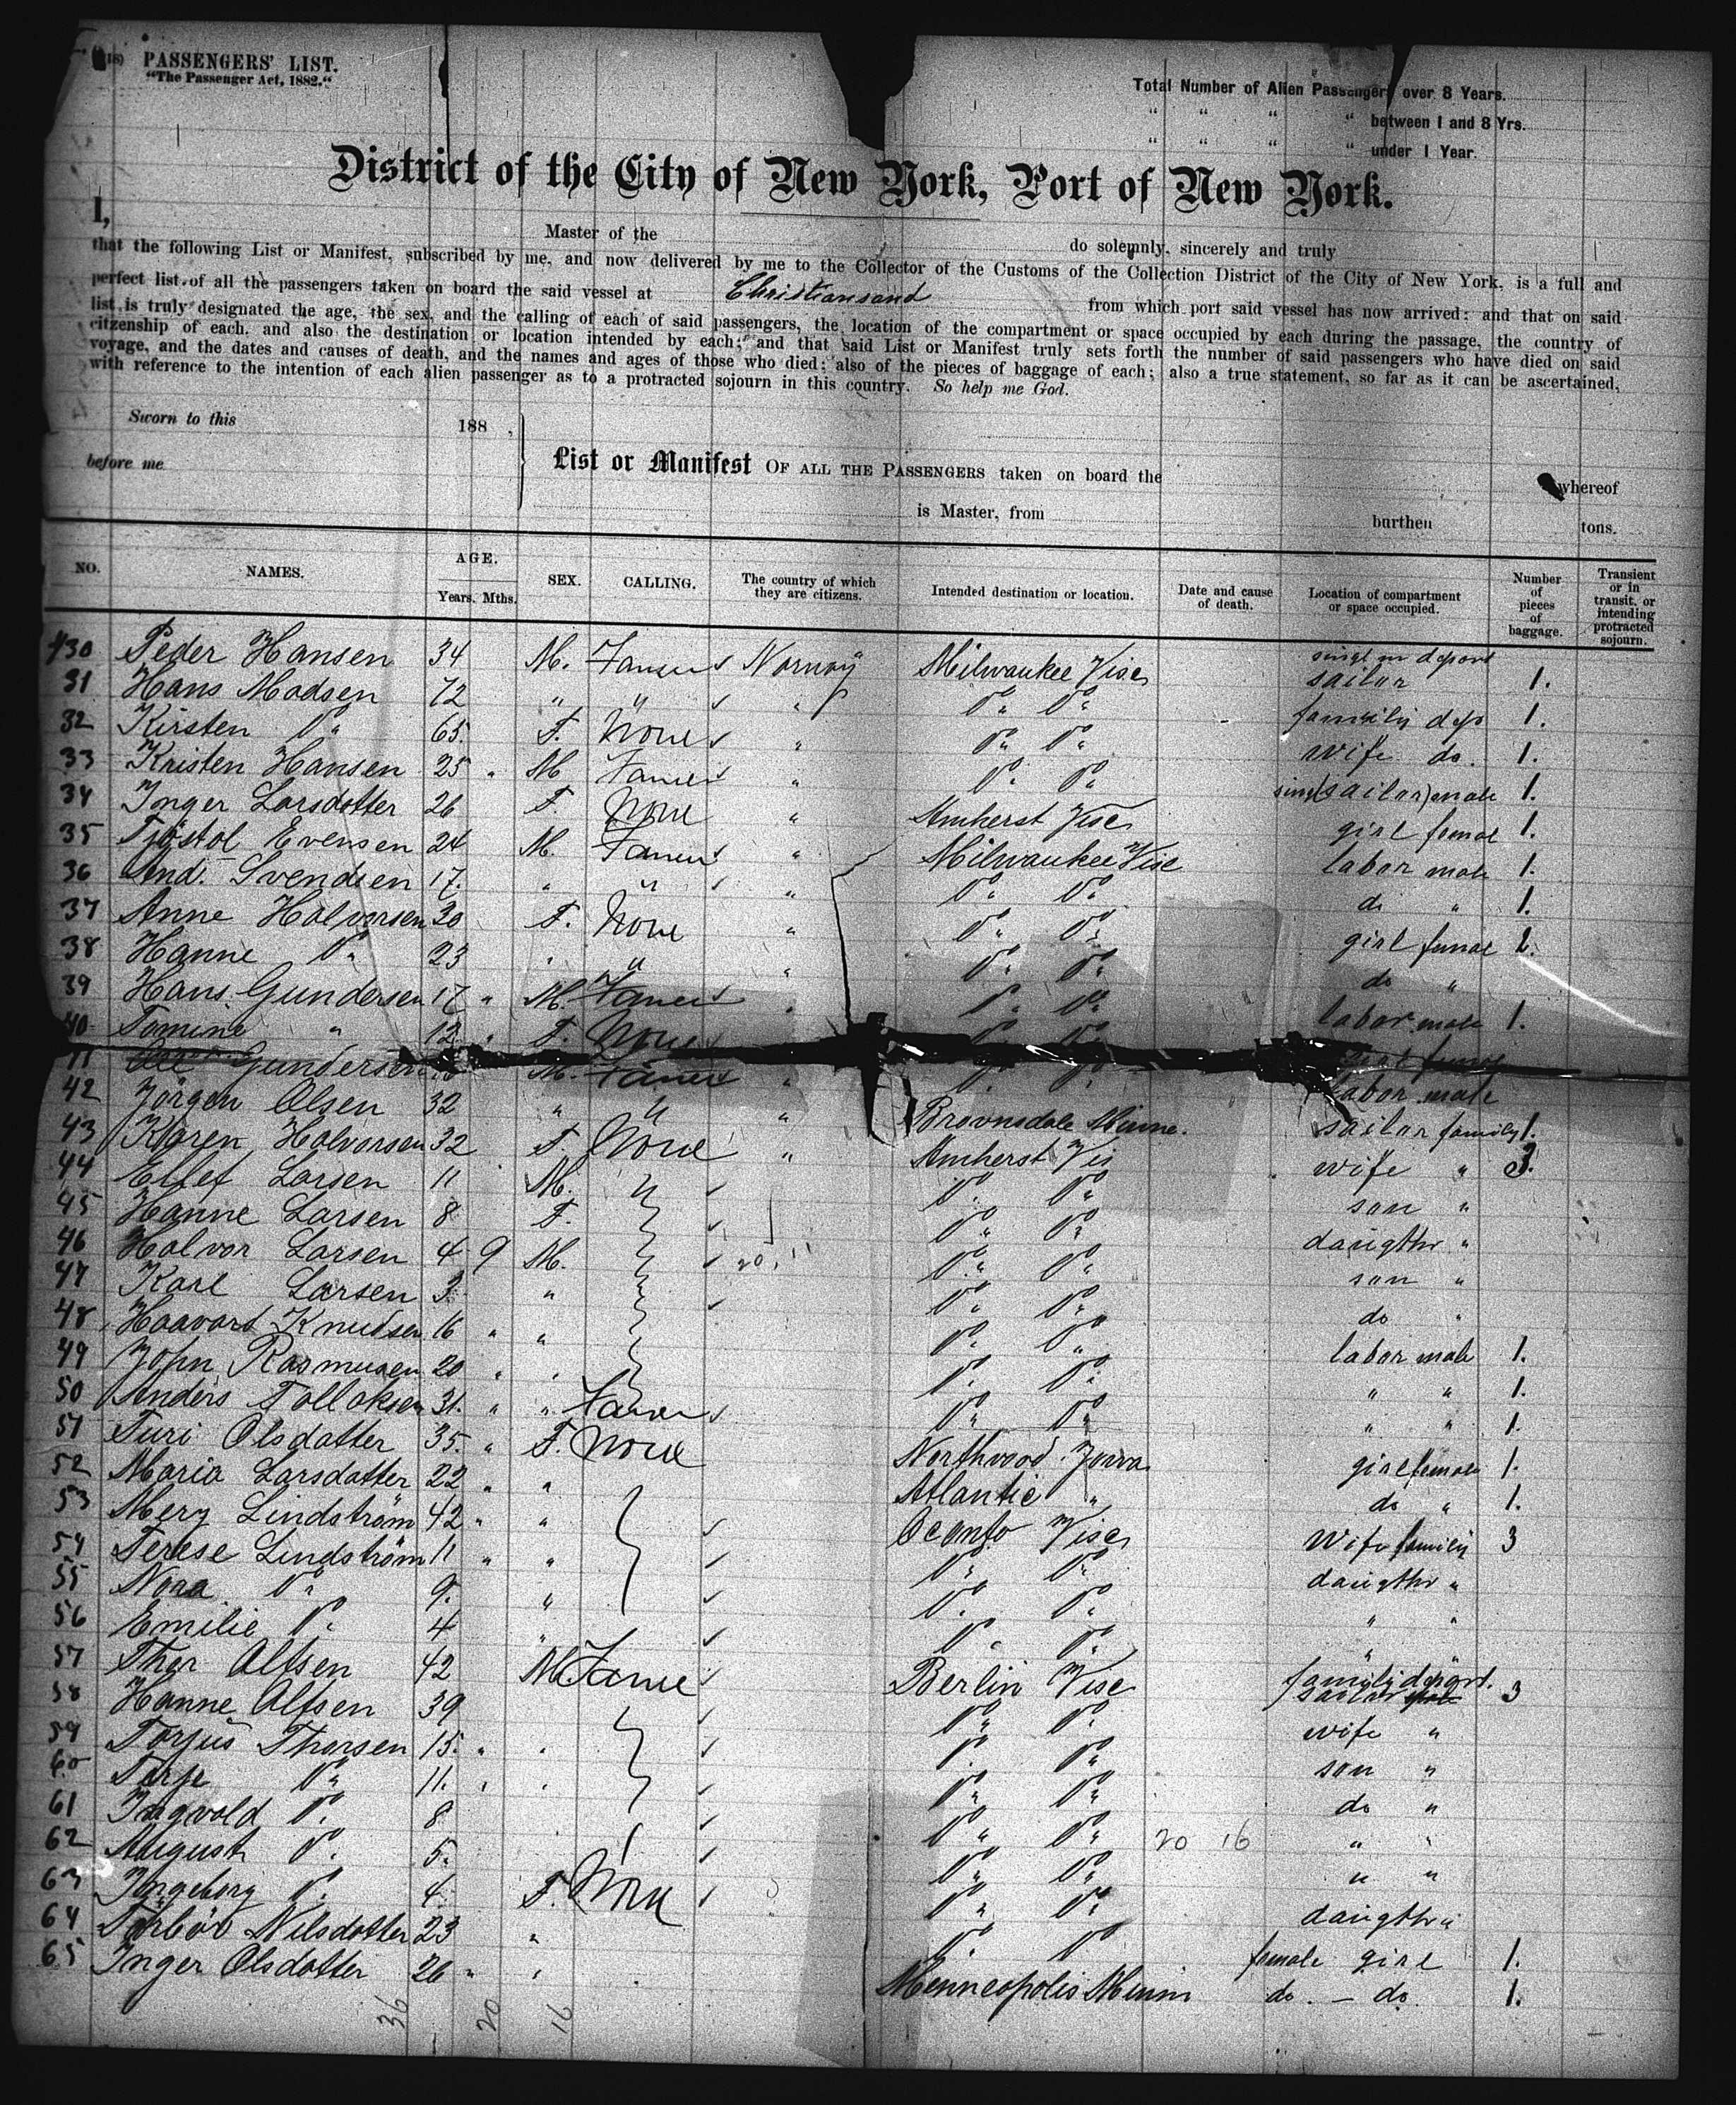 PASSENGERS' LIST.
"The Passenger Act, 1882."
Total Number of Alien Passengers over 8 Years.
" " " " between 1 and 8 Yrs.
" " " " under 1 Year.
District of the City of New York, Port of New York.
I, Master of the do solemnly, sincerely and truly
that the following List or Manifest, subscribed by me, and now delivered by me to the Collector of the Customs of the Collection District of the City of New York, is a full and
perfect list of all the passengers taken on board the said vessel at Christiansand from which port said vessel has now arrived; and that on said
list is truly designated the age, the sex, and the calling of each of said passengers, the location of the compartment or space occupied by each during the passage, the country of
citzenship of each, and also the destination or location intended by each; and that said List or Manifest truly sets forth the number of said passengers who have died on said
voyage, and the dates and causes of death, and the names and ages of those who died; also of the pieces of baggage of each; also a true statement, so far as it can be ascertained,
with reference to the intention of each alien passenger as to a protracted sojourn in this country. So help me God.
Sworn to this 188 ,
before me
List or Manifest OF ALL THE PASSENGERS taken on board the whereof
is Master, from burthen tons.
NO. NAMES. AGE. Years. Mths. SEX. CALLING. The country of which they are citizens. Intended destination or location. Date and cause of death. Location of compartment or space occupied. Number of pieces of baggage. Transient or in transit, or intending protracted sojourn.
430 Peder Hansen 34 M. Farmer Norway Milwaukee Visc singl m deport sailor 1.
31 Hans Madsen 72 " " " Do Do family dep 1.
32 Kirsten Do 65. F. None " Do Do wife do. 1.
33 Kristen Hansen 25 " M Farmer " Do Do singl sailor male 1.
34 Inger Larsdotter 26 F. None " Amherst Visc girl femal 1.
35 Tjöstol Evensen 24 M. Farmer " Milwaukee Visc labor male 1.
36 And. Svendsen 17. " " " Do Do do " 1.
37 Anne Halvorsen 30 F. None " Do Do girl femal 2.
38 Hanne Do 23 " " " Do Do do "
39 Hans Gundersen 17 " M. Farmer " Do Do labor male 1.
40 Tomine " 12 " F. None Do Do
41 Gundersen M. Farmer " Do Do labor male
42 Jörgen Olsen 32 " " " Brovnsdale Minne. sailor family 1.
43 Karen Halvorsen 32 F. None " Amherst Vis wife " 3.
44 Ellef Larsen 11 M. " Do Do son "
45 Hanne Larsen 8 F. Do Do daugthr "
46 Halvor Larsen 4 9 M. 20, 11 Do Do son "
47 Karl Larsen 3 " Do Do do "
48 Haavard Knudsen 16 " " Do Do labor male 1.
49 John Rasmusen 20 " " Do Do " " 1.
50 Anders Tollaksen 31. " " Farmer Do Do " " 1.
51 Turi Olsdatter 35. " F. None Northwood Jowa girl female 1.
52 Maria Larsdatter 22 " " Atlantic " do " 1.
53 Mery Lindström 42 " " Oconto Visc Wife family 3
54 Terese Lindström 11 " " Do Do daugthr "
55 Nora Do 9. " Do Do " "
56 Emilie Do 4 " Do Do "
57 Ther Alfsen 42 M. Farme Berlin Visc family deport. sailor 3
58 Hanne Alfsen 39 Do Do wife "
59 Torjus Thorsen 15. " " Do Do son "
60 Terje Do 11. " " Do Do do "
61 Ingvald Do 8 Do Do 20 16 " "
62 August Do 5. Do Do " "
63 Ingeborg Do 4. F. None Do Do daugthr "
64 Torbör Nilsdotter 23 " Do Do female girl 1.
65 Inger Olsdotter 26 " " Menneopolis Minn do. – do. 1.
36 20 16